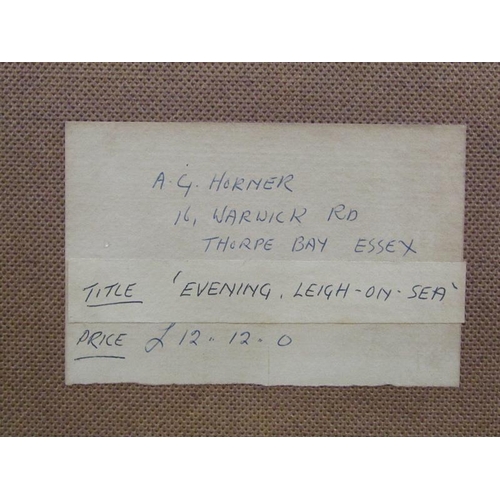 A.G. HORNER
16, WARWICK RD
THORPE BAY ESSEX
TITLE 'EVENING, LEIGH-ON-SEA'
PRICE £12.12.0